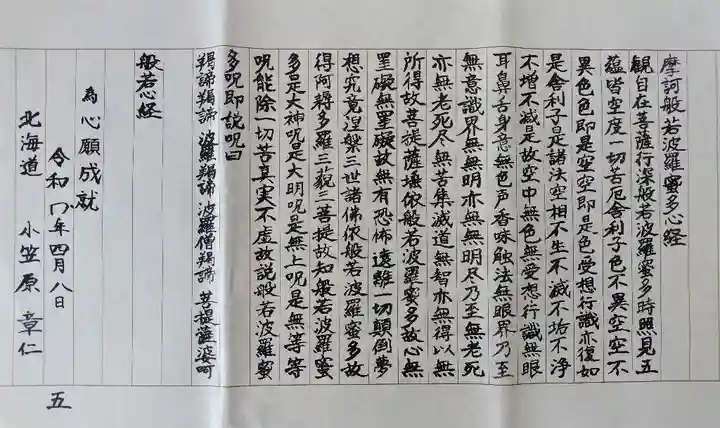 摩訶般若波羅蜜多心経
観自在菩薩行深般若波羅蜜多時照見五
蘊皆空度一切苦厄舎利子色不異空空不
異色色即是空空即是色受想行識亦復如
是舎利子是諸法空相不生不滅不垢不浄
不増不減是故空中無色無受想行識無眼
耳鼻舌身意無色声香味触法無眼界乃至
無意識界無無明亦無無明尽乃至無老死
亦無老死尽無苦集滅道無智亦無得以無
所得故菩提薩埵依般若波羅蜜多故心無
罣礙無罣礙故無有恐怖遠離一切顛倒夢
想究竟涅槃三世諸佛依般若波羅蜜多故
得阿耨多羅三藐三菩提故知般若波羅蜜
多是大神呪是大明呪是無上呪是無等等
呪能除一切苦真実不虚故説般若波羅蜜
多呪即説呪曰
羯諦羯諦 波羅羯諦 波羅僧羯諦 菩提薩婆訶
般若心経
為心願成就
令和八年四月八日
北海道 小笠原 章仁
五